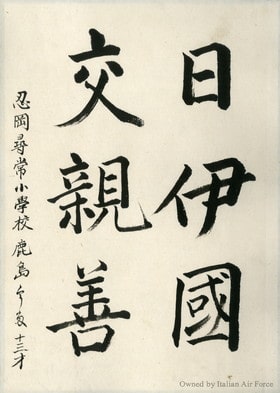 日伊國
交親善
忍岡尋常小學校 鹿島
十三才
Owned by Italian Air Force